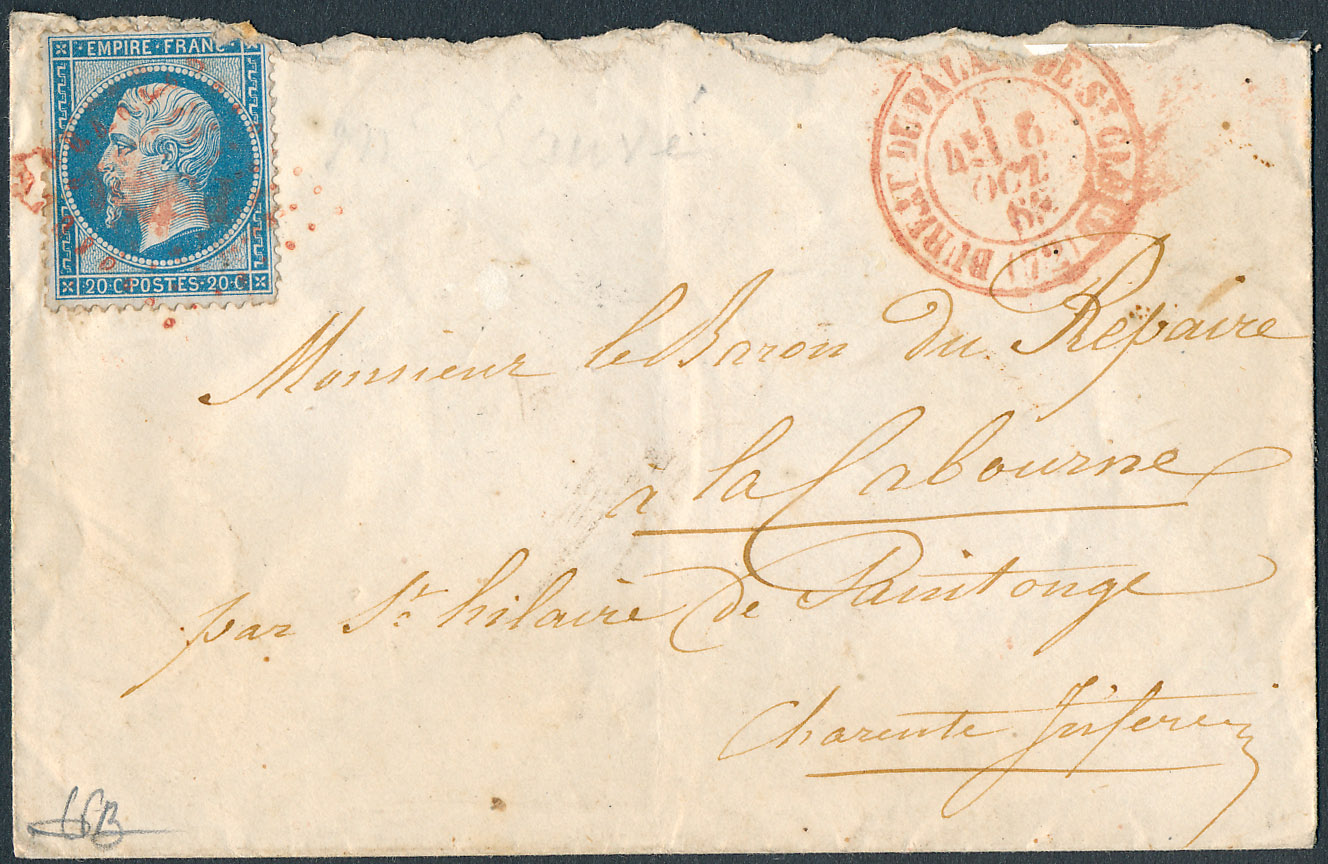 EMPIRE FRANC
20·C·POSTES·20·C
BUREAU DU PALAIS DE ST CLOUD
OCT.
65
Monsieur le Baron du Repaire
à la Cabourne
par St hilaire de Saintonge
Charente Inferere